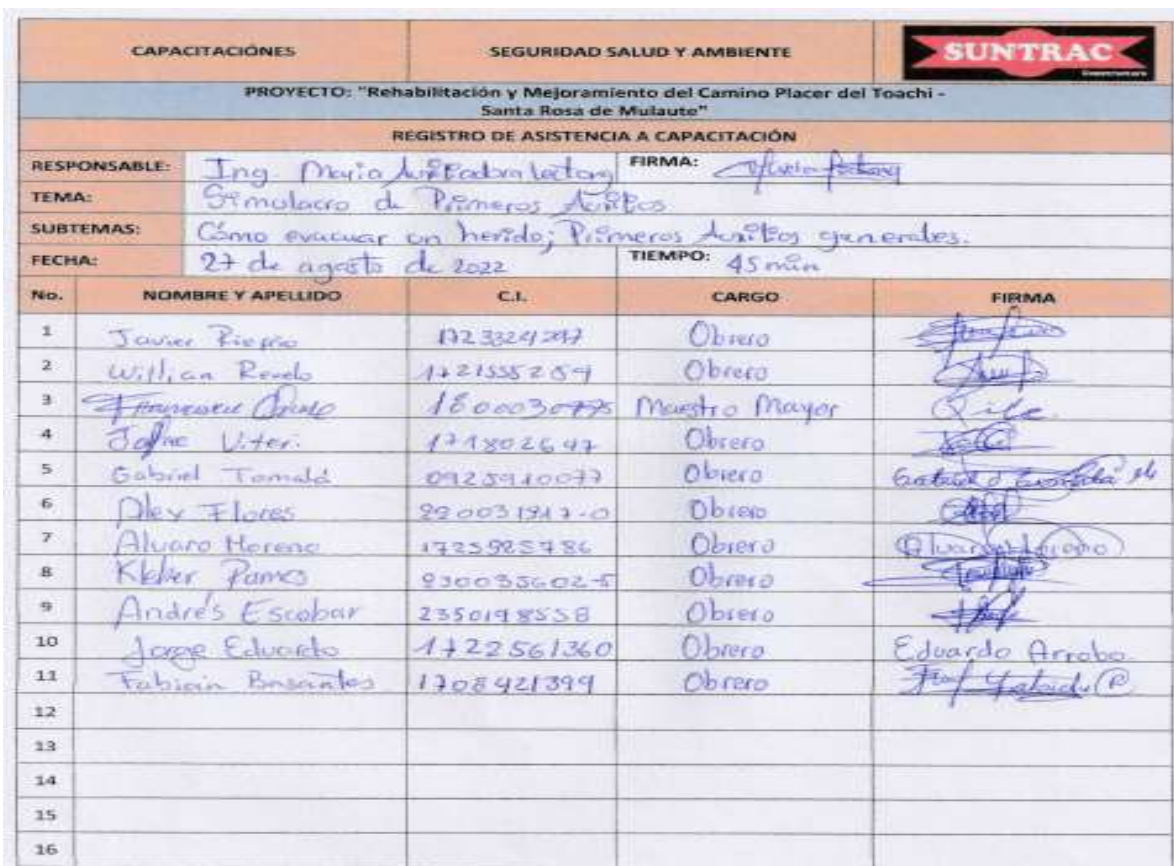 CAPACITACIÓNES SEGURIDAD SALUD Y AMBIENTE SUNTRAC
PROYECTO: "Rehabilitación y Mejoramiento del Camino Placer del Toachi -
Santa Rosa de Mulaute"
REGISTRO DE ASISTENCIA A CAPACITACIÓN
RESPONSABLE: Ing Maria FIRMA:
TEMA: Simulacro de Primeros Auxilios
SUBTEMAS: Cómo evacuar un herido; Primeros Auxilios generales.
FECHA: 27 de agosto de 2022 TIEMPO: 45 min
No. NOMBRE Y APELLIDO C.I. CARGO FIRMA
1 Javier Obrero
2 Willian Revelo Obrero
3 1800030775 Maestro Mayor
4 Viteri 171802647 Obrero
5 Gabriel Tomalá 0925910077 Obrero
6 Alex Flores Obrero
7 Alvaro Moreno 1725925786 Obrero Alvaro Moreno
8 Kleber Obrero
9 Andrés Escobar 2350198558 Obrero
10 Jorge Eduardo 1722561360 Obrero Eduardo Arrobo
11 Fabian Basantes 1708421399 Obrero
12
13
14
15
16